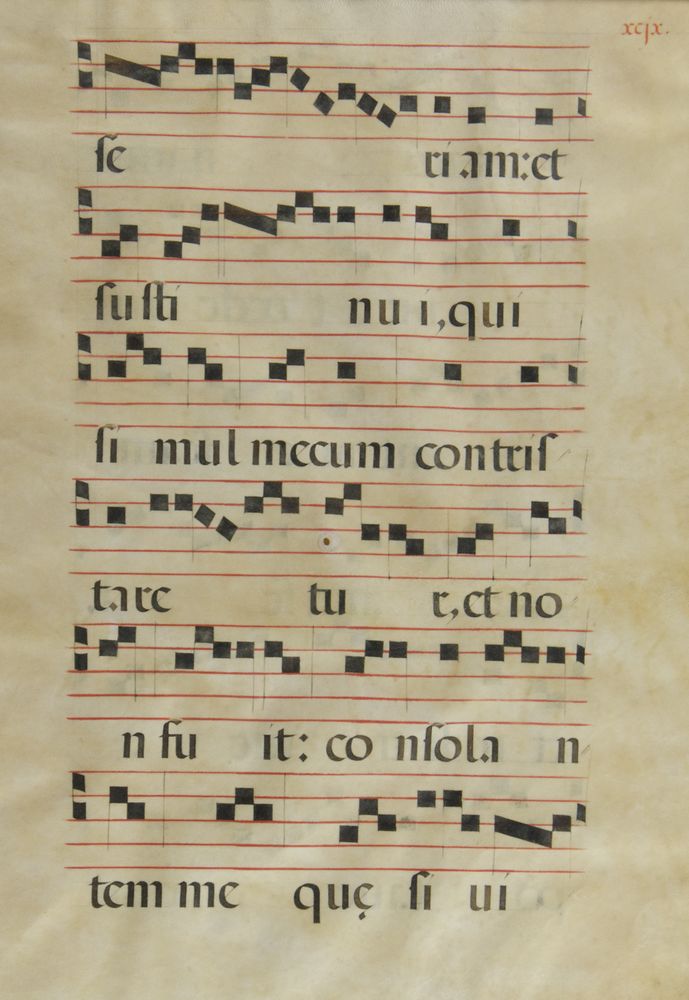 xcjx.
se riam:et
susti nui,qui
si mul mecum contris
tare tur,et no
n fu it: co nsola n
tem me quę si ui